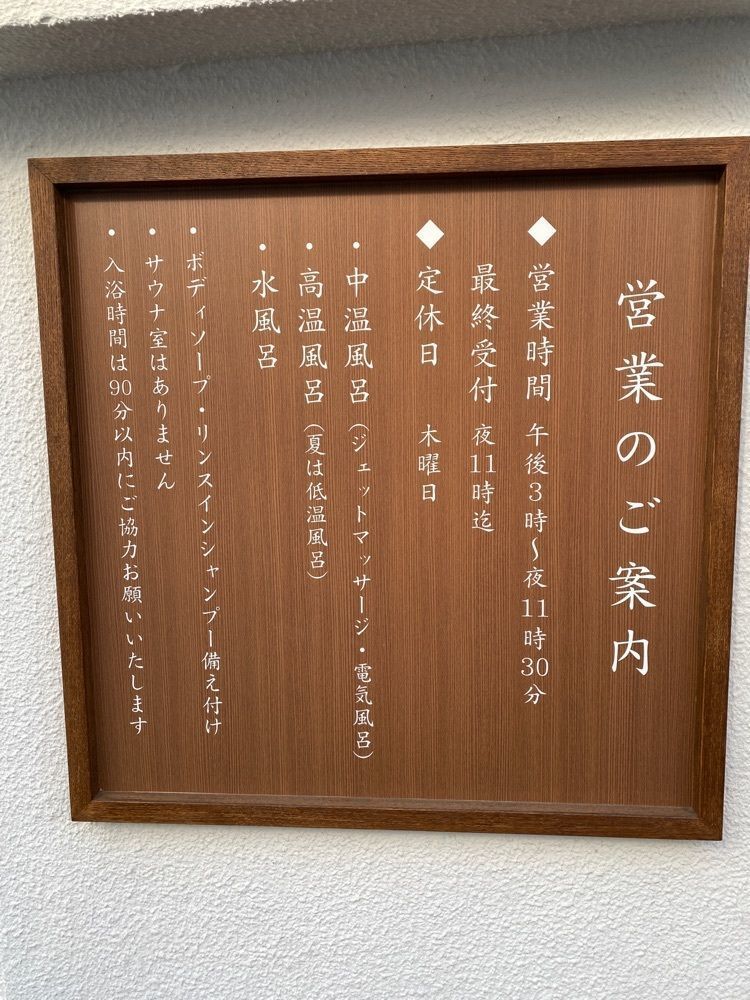 営業のご案内
◆営業時間 午後3時〜夜11時30分
最終受付 夜11時迄
◆定休日 木曜日
・中温風呂(ジェットマッサージ・電気風呂)
・高温風呂(夏は低温風呂)
・水風呂
・ボディソープ・リンスインシャンプー備え付け
・サウナ室はありません
・入浴時間は90分以内にご協力お願いいたします